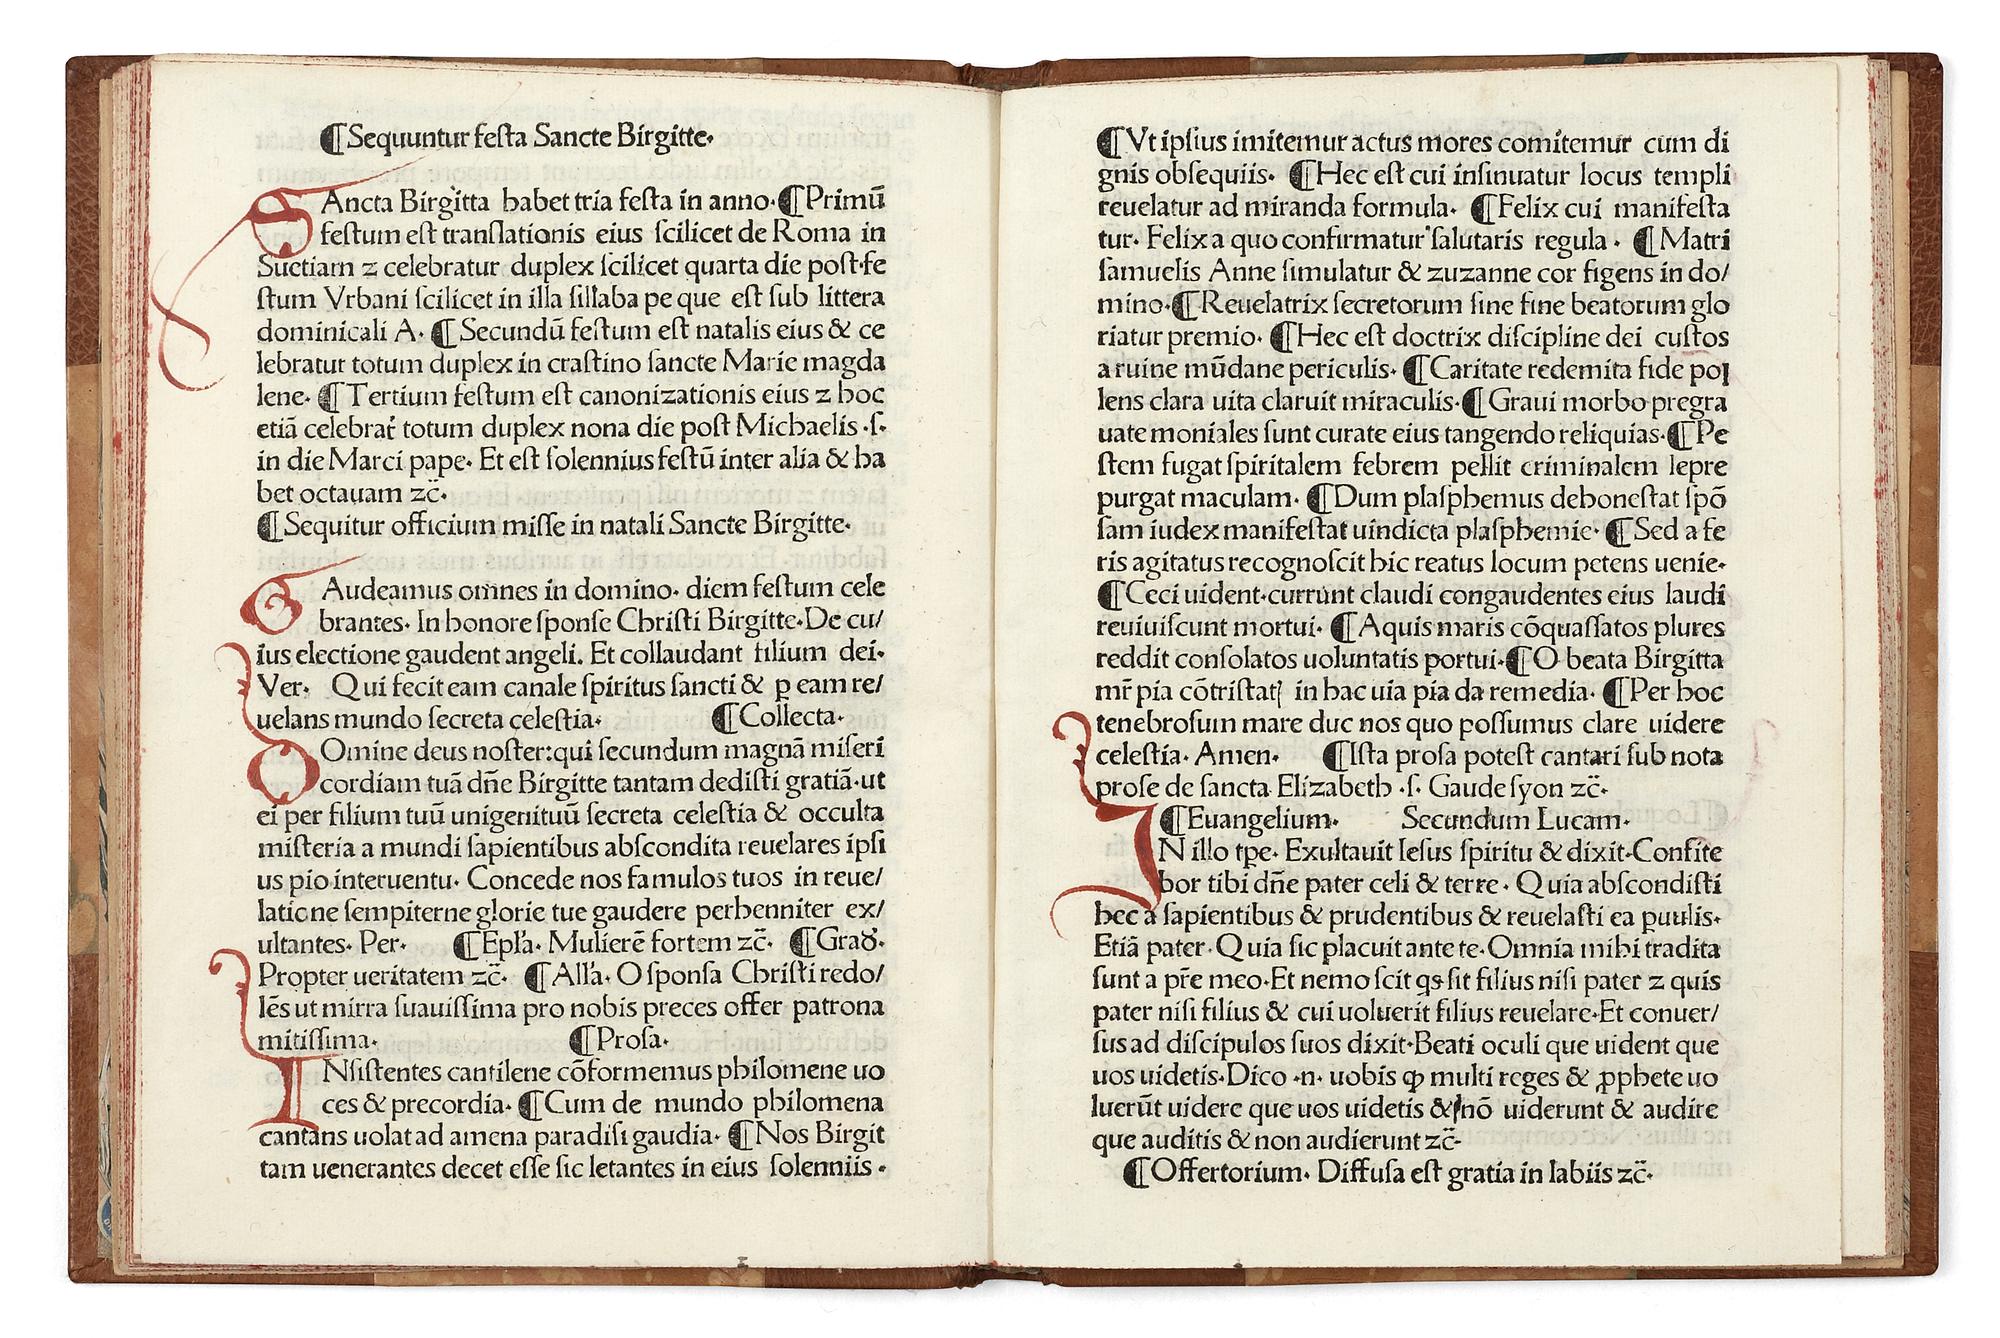 ¶Sequuntur festa Sancte Birgitte.
SAncta Birgitta habet tria festa in anno.¶Primū
festum est translationis eius scilicet de Roma in
Suetiam ⁊ celebratur duplex scilicet quarta die post fe
stum Vrbani scilicet in illa sillaba pe que est sub littera
dominicali A. ¶Secundū festum est natalis eius & ce
lebratur totum duplex in crastino sancte Marie magda
lene. ¶Tertium festum est canonizationis eius ⁊ hoc
etiā celebrat̄ totum duplex nona die post Michaelis .s.
in die Marci pape. Et est solennius festū inter alia & ha
bet octauam ⁊c̄.
¶Sequitur officium misse in natali Sancte Birgitte.
GAudeamus om̄nes in domino. diem festum cele
brantes. In honore sponse Christi Birgitte.De cu/
ius electione gaudent angeli. Et collaudant filium dei.
Ver. Qui fecit eam canale spiritus sancti & ꝑ eam re/
uelans mundo secreta celestia. ¶Collecta.
DOmine deus noster:qui secundum magnā miseri
cordiam tuā dn̄e Birgitte tantam dedisti gratiā.ut
ei per filium tuū unigenituū secreta celestia & occulta
misteria a mundi sapientibus abscondita reuelares ipsi
us pio interuentu. Concede nos famulos tuos in reue/
latione sempiterne glorie tue gaudere perhenniter ex/
ultantes. Per. ¶Epl̄a. Mulierē fortem ⁊c̄. ¶Grad̄.
Propter ueritatem ⁊c̄. ¶All̄a. O sponsa Christi redo/
lēs ut mirra suauissima pro nobis preces offer patrona
mitissima. ¶Prosa.
INsistentes cantilene cōformemus philomene uo
ces & precordia. ¶Cum de mundo philomena
cantans uolat ad amena paradisi gaudia. ¶Nos Birgit
tam uenerantes decet esse sic letantes in eius solenniis.
¶Vt ipsius imitemur actus mores comitemur cum di
gnis obsequiis. ¶Hec est cui insinuatur locus templi
reuelatur ad miranda formula. ¶Felix cui manifesta
tur. Felix a quo confirmatur salutaris regula. ¶Matri
samuelis Anne simulatur & zuzanne cor figens in do/
mino.¶Reuelatrix secretorum sine fine beatorum glo
riatur premio. ¶Hec est doctrix discipline dei custos
a ruine mūdane periculis. ¶Caritate redemita fide pol
lens clara uita claruit miraculis.¶Graui morbo pregra
uate moniales sunt curate eius tangendo reliquias.¶Pe
stem fugat spiritalem febrem pellit criminalem lepre
purgat maculam. ¶Dum plasphemus dehonestat spō
sam iudex manifestat uindicta plasphemie. ¶Sed a fe
ris agitatus recognoscit hic reatus locum petens uenie.
¶Ceci uident.currunt claudi congaudentes eius laudi
reuiuiscunt mortui. ¶Aquis maris cōquassatos plures
reddit consolatos uoluntatis portui.¶O beata Birgitta
mr̄ pia cōtristatꝭ in hac uia pia da remedia. ¶Per hoc
tenebrosum mare duc nos quo possumus clare uidere
celestia. Amen. ¶Ista prosa potest cantari sub nota
prose de sancta Elizabeth .s. Gaude syon ⁊c̄.
¶Euangelium. Secundum Lucam.
IN illo tp̄e. Exultauit Iesus spiritu & dixit.Confite
bor tibi dn̄e pater celi & terre. Quia abscondisti
hec a sapientibus & prudentibus & reuelasti ea paruulis.
Etiā pater. Quia sic placuit ante te. Omnia mihi tradita
sunt a pr̄e meo.Et nemo scit qs sit filius nisi pater ⁊ quis
pater nisi filius & cui uoluerit filius reuelare.Et conuer/
sus ad discipulos suos dixit.Beati oculi que uident que
uos uidetis.Dico .n. uobis ꝙ multi reges & ꝓphete uo
luerūt uidere que uos uidetis & nō uiderunt & audire
que auditis & non audierunt ⁊c̄.
¶Offertorium. Diffusa est gratia in labiis ⁊c̄.